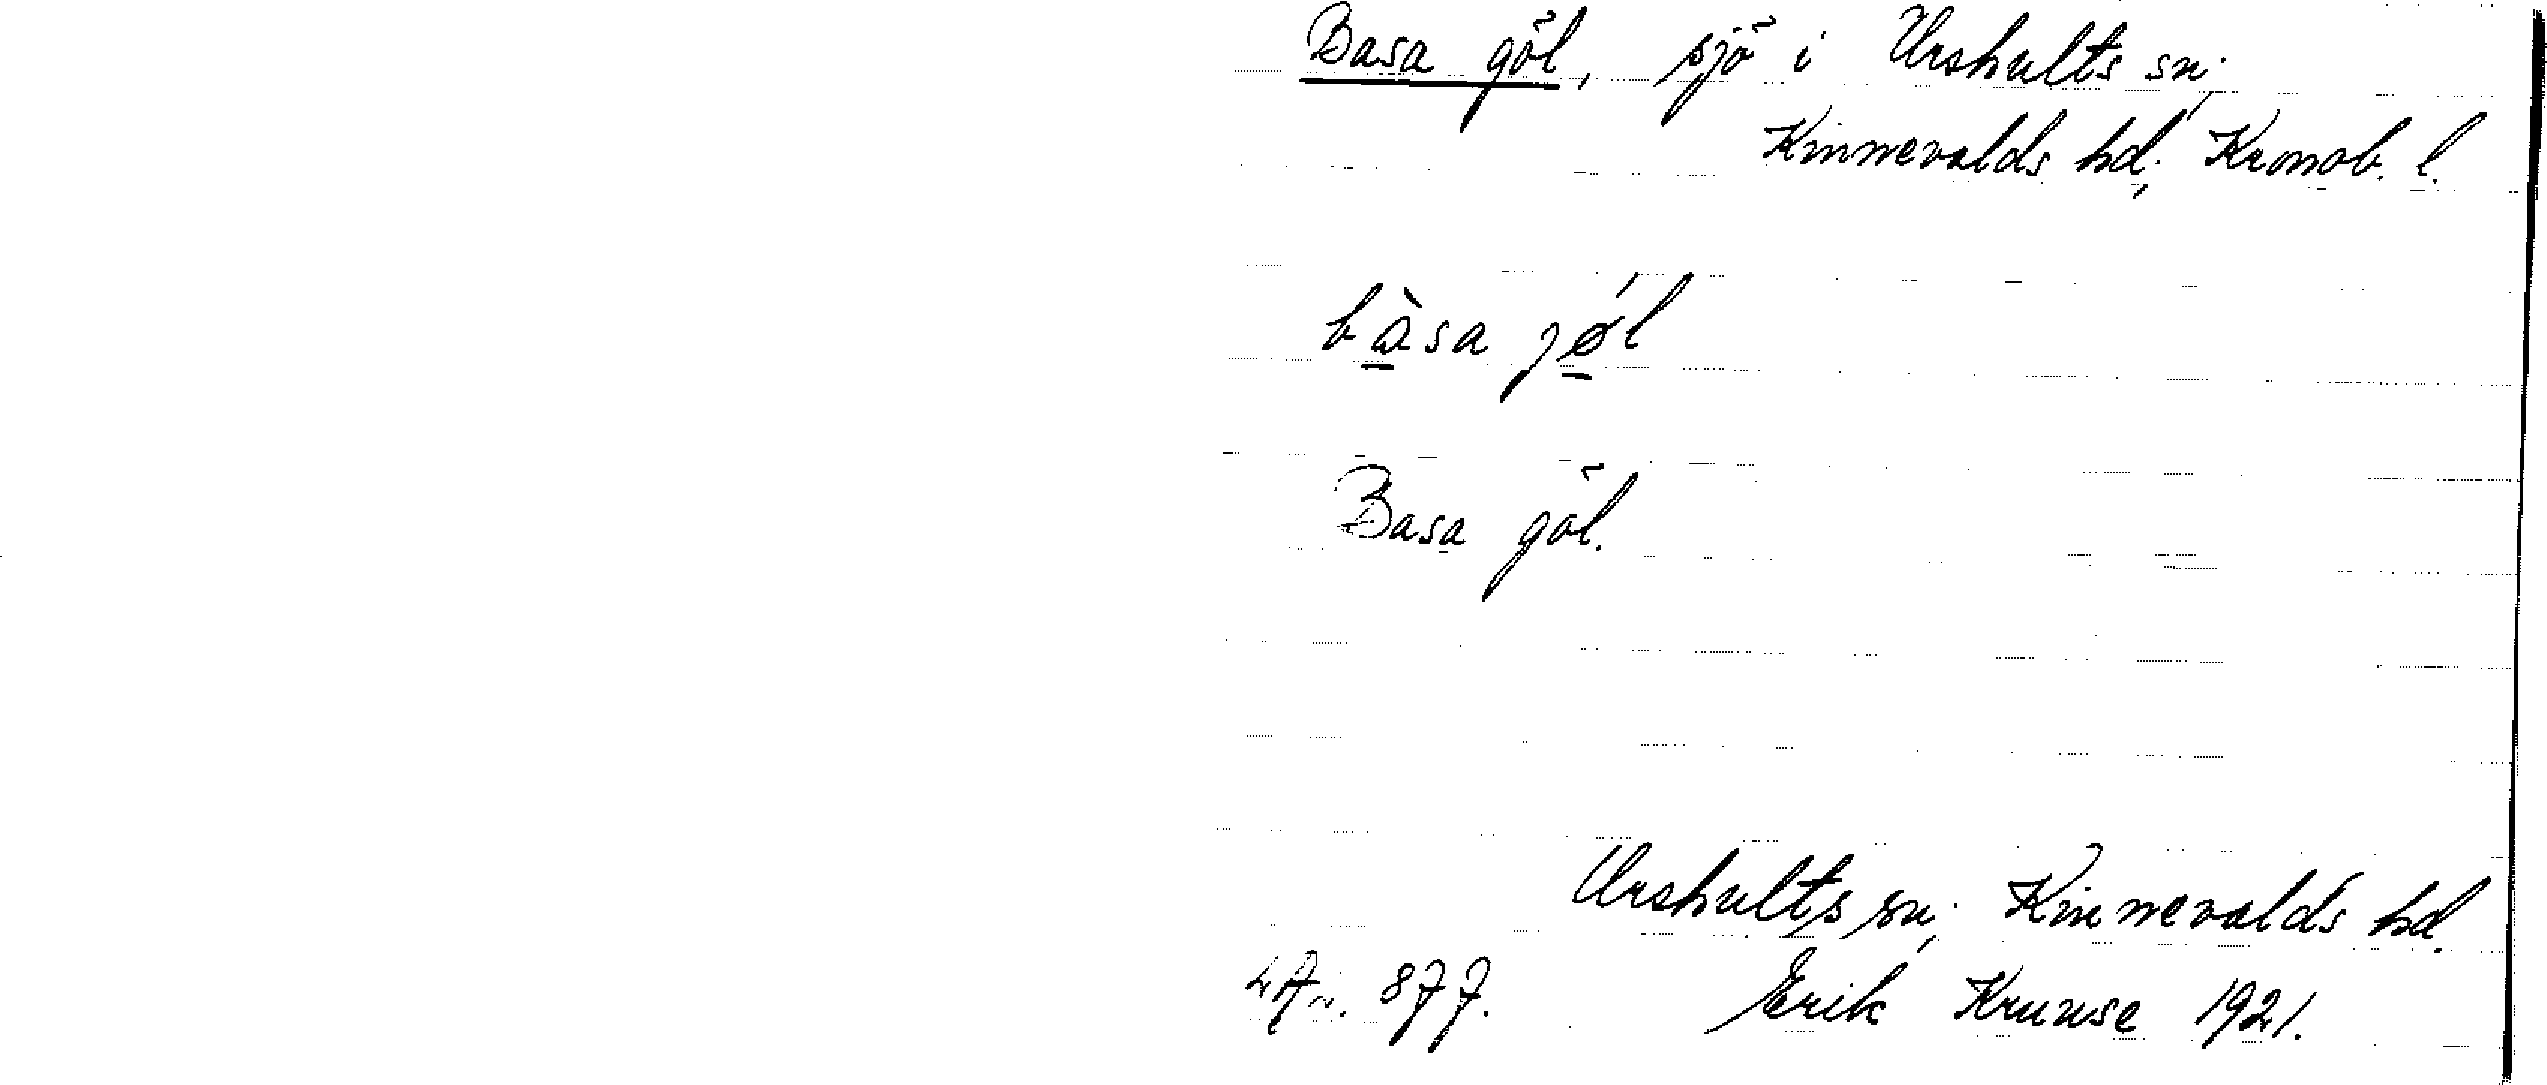 Basa göl, sjö i Urshults sn;
Kinnevalds hd; Kronob. l.
bàsa jǿl
Basa göl.
Urshults sn; Kinnevalds hd.
877. Erik Kruuse 1921.